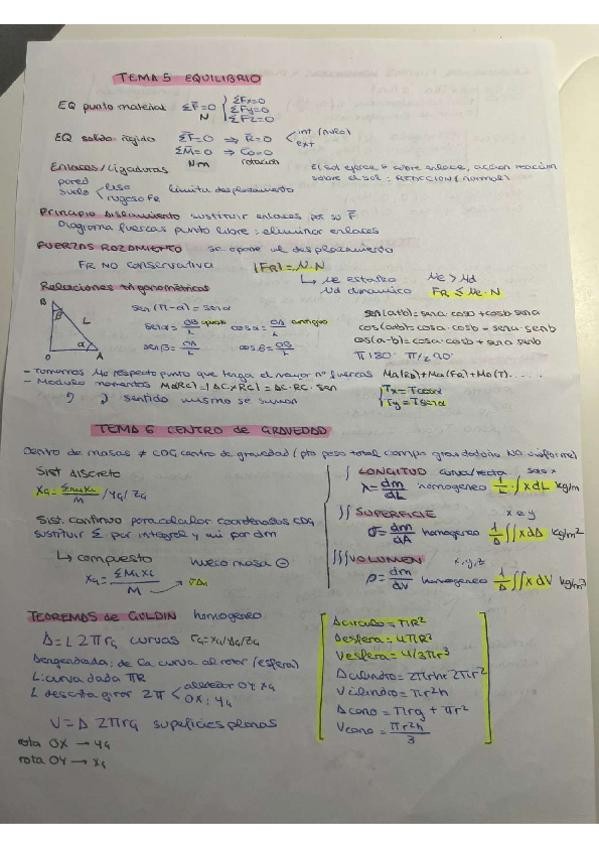 TEMA 5 EQUILIBRIO
EQ punto material ΣF̄=0 { ΣFx=0 ΣFy=0 ΣFz=0
N
EQ solido rigido ΣF̄=0 ⇒ R̄=0 < int (nulo) ext
ΣM̄=0 ⇒ C̄o=0
N·m rotacion
Enlaces/Ligaduras El sol ejerce F sobre enlace, accion reacción
pared suelo < liso rugoso FR limita desplazamiento sobre el sol: REACCION (normal)
Principio Aislamiento sustituir enlaces por su F̄
Diagrama fuerzas punto libre: eliminar enlaces
FUERZAS ROZAMIENTO se opone al desplazamiento
FR NO conservativa |FR| = μ·N
↳ μe estatico μe > μd
μd dinamico FR ≤ μe·N
Relaciones trigonométricas
B β L α O A
sen(π-α)=senα
senα = OB/L opuesto cosα = OA/L contiguo
senβ = OA/L cosβ = OB/L
sen(a+b)=sena·cosb+cosb sena
cos(a+b)=cosa·cosb-sena·senb
cos(a-b)=cosa·cosb+sena senb
π 180° π/2 90°
- Tomamos Mo respecto punto que tenga el mayor nº fuerzas MA(RB)+MA(FR)+MA(T).....
- Modulo momentos MA(RC)=|AC×RC|=AC·RC·sen { Tx=Tcosα Ty=Tsenα
sentido mismo se suman
TEMA 6 CENTRO de GRAVEDAD
Centro de masas ≠ CDG centro de gravedad (pto peso total campo gravitatorio NO uniforme)
Sist discreto
XG = ΣmiXi / M / YG / ZG
Sist. continuo para calcular coordenadas CDG
sustituir Σ por integral y mi por dm
↳ compuesto hueco masa ⊖
XG = ΣMiXi / M
∫ LONGITUD curva/recta
λ = dm/dL homogeneo 1/L·∫x dL kg/m
∫∫ SUPERFICIE x e y
σ = dm/dA homogeneo 1/A ∫∫x dA kg/m²
∫∫∫ VOLUMEN x,y,z
ρ = dm/dV homogeneo 1/A ∫∫x dV kg/m³
TEOREMAS de GULDIN homogeneo
A = L 2πrG curvas rG=XG/YG/ZG
Aengendada: de la curva al rotar (esfera)
L: curva dada πR
L descrita girar 2π < alrededor OY: XG OX: YG
V = A 2πrG superficies planas
rota OX → YG
rota OY → XG
Acirculo = πR²
Aesfera = 4πR²
Vesfera = 4/3πr³
Acilindro = 2πrh+2πr²
Vcilindro = πr²h
Acono = πrg + πr²
Vcono = πr²h/3